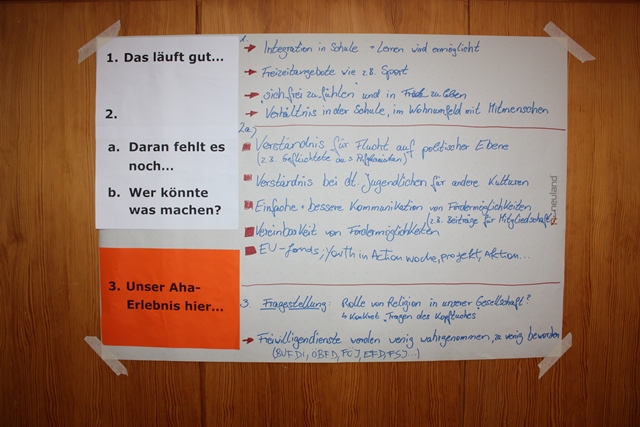 1. Das läuft gut...
2.
a. Daran fehlt es
noch...
b. Wer könnte
was machen?
3. Unser Aha-
Erlebnis hier...
1.
Integration in Schule + Lernen wird ermöglicht
Freizeitangebote wie z.B. Sport
"sich frei zu fühlen" und in zu leben
Verhältnis in der Schule, im Wohnumfeld mit Mitmenschen
2a.)
Verständnis für Flucht auf politischer Ebene
(z.B. Geflüchtete aus Afghanistan)
Verständnis bei dt. Jugendlichen für andere Kulturen
Einfache + bessere Kommunikation von Fördermöglichkeiten
(z.B. Beiträge für Mitgliedschaft
Vereinbarkeit von Fördermöglichkeiten
EU-fonds, Youth in Action woche, projekt, Aktion...
3. Fragestellung: Rolle von Religion in unserer Gesellschaft?
Konkret: "Tragen des Kopftuches"
Freiwilligendienste werden wenig wahrgenommen, zu wenig beworben
(BUFDi, ÖBFD, FÖJ, EFD, FSJ...)
neuland